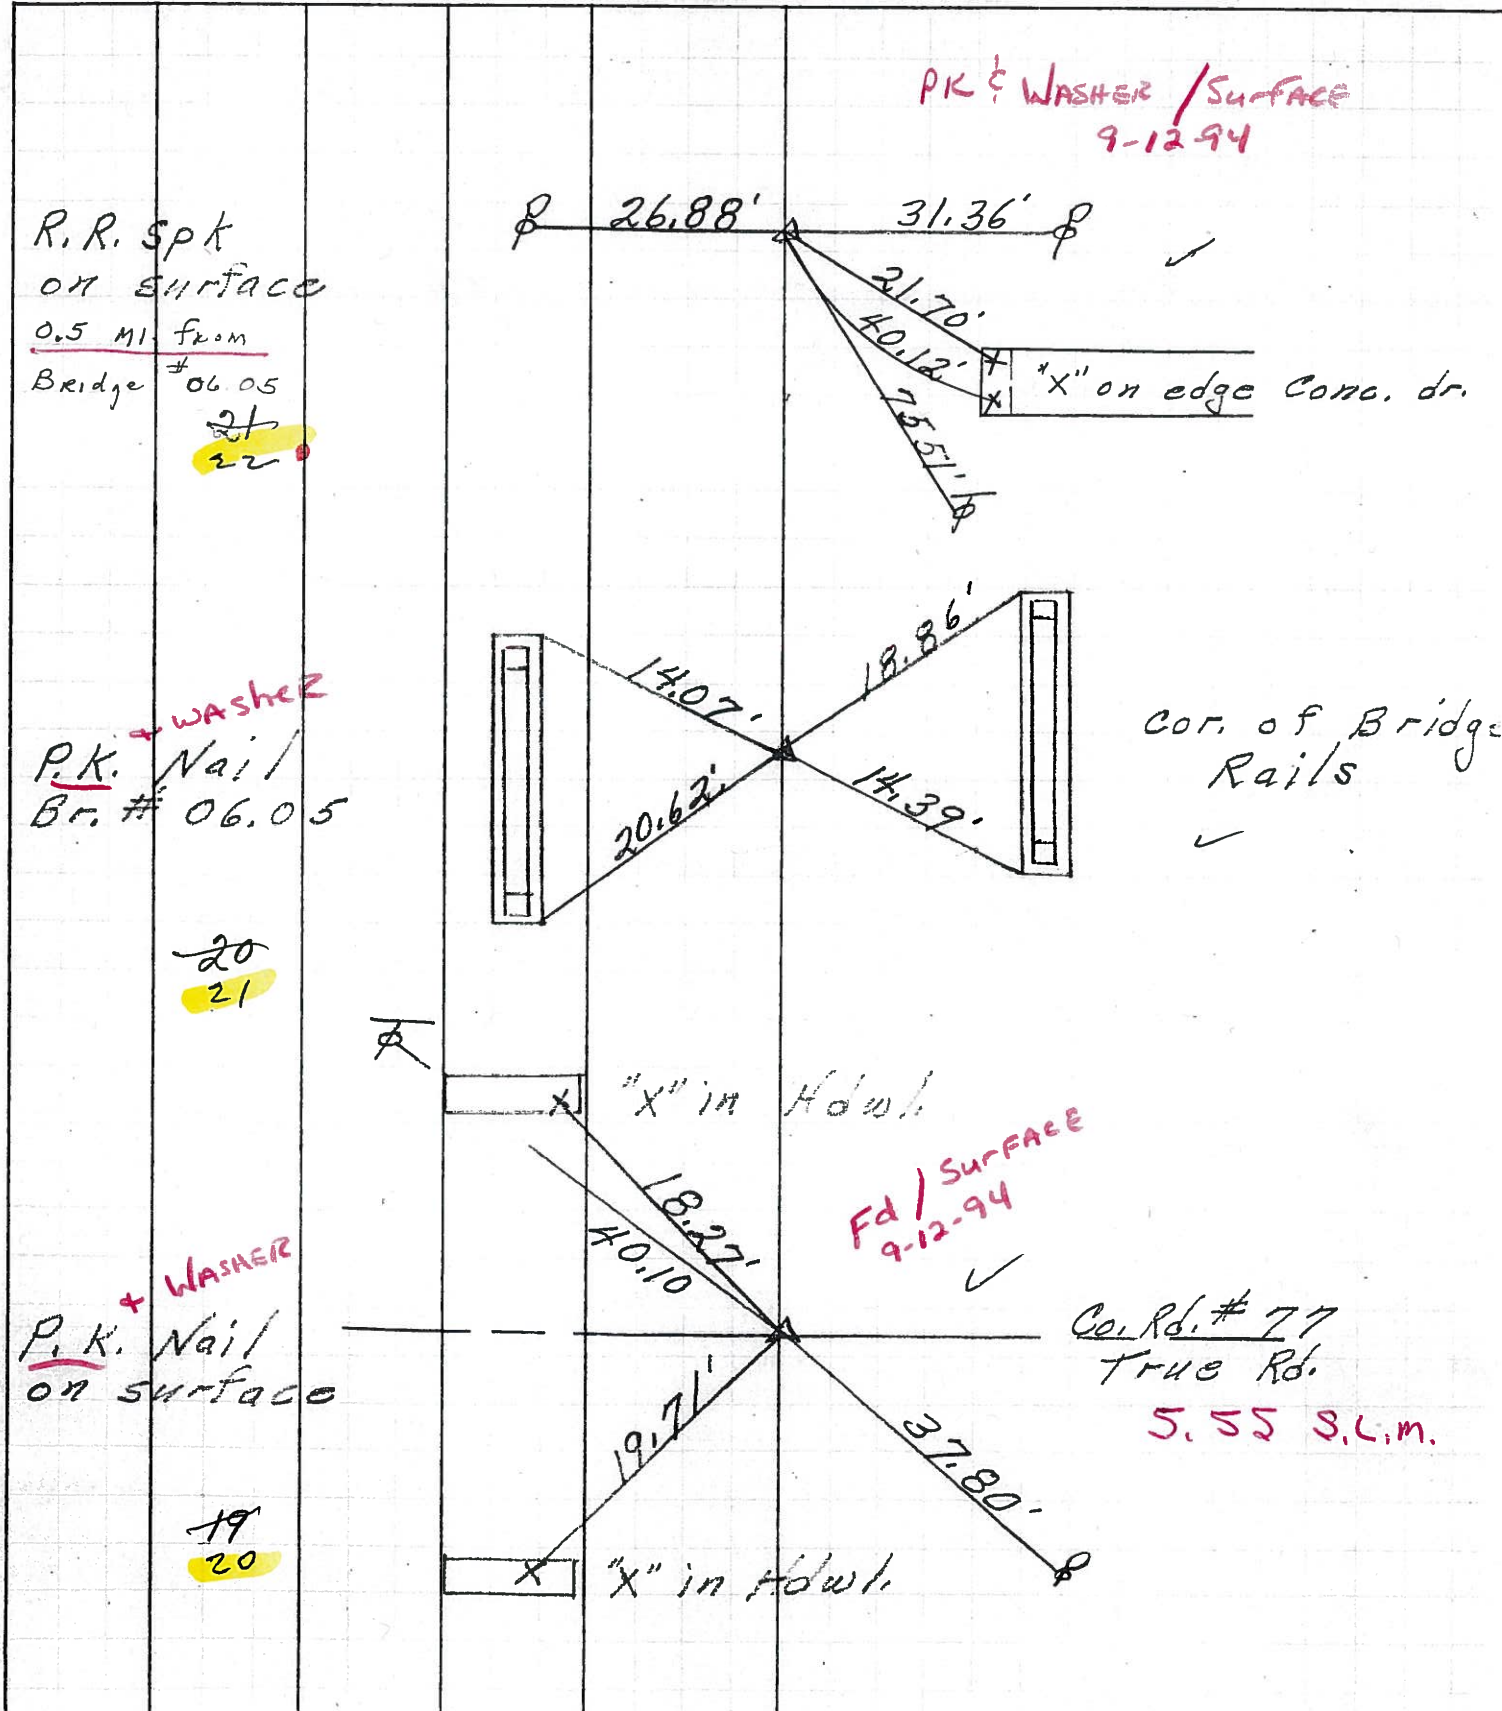 PK & WASHER / SurFACE
9-12-94
R.R. Spk
on surface
0.5 MI. from
Bridge #06.05
21
22
26.88'
31.36'
21.70'
40.12'
75.51'
"X" on edge Conc. dr.
+ WASHER
P.K. Nail
Br. # 06.05
14.07'
18.86'
20.62'
14.39'
Cor. of Bridge
Rails
20
21
"X" in Hdwl.
18.27'
40.10
Fd / SurFACE
9-12-94
+ WASHER
P.K. Nail
on surface
Co. Rd. # 77
True Rd.
5.55 S.L.M.
19.71'
37.80'
19
20
"X" in Hdwl.